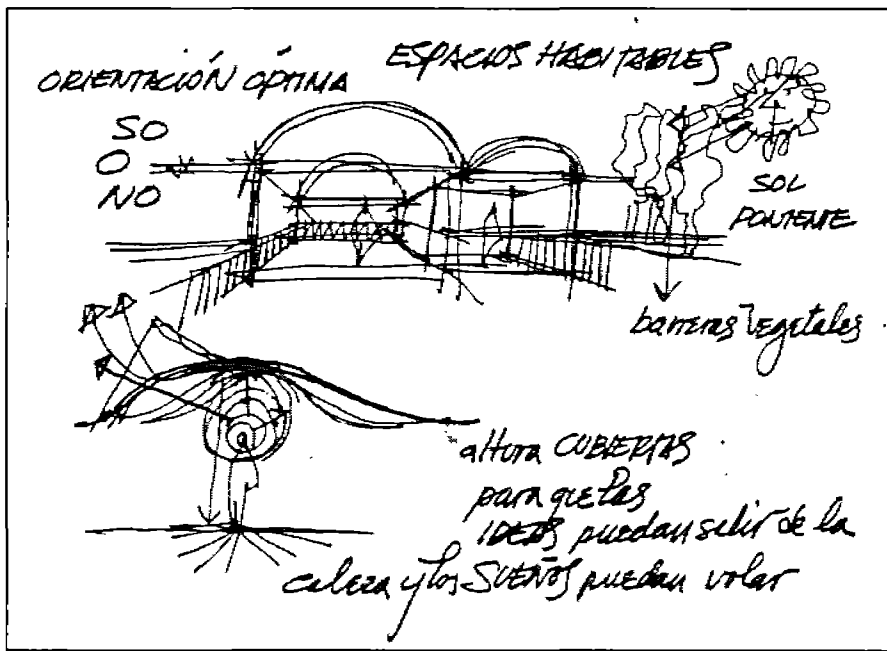 ORIENTACIÓN ÓPTIMA
ESPACIOS HABITABLES
SO
O
NO
SOL
PONIENTE
barreras vegetales
altura CUBIERTAS
para que las
IDEAS puedan salir de la
cabeza y los SUEÑOS puedan volar